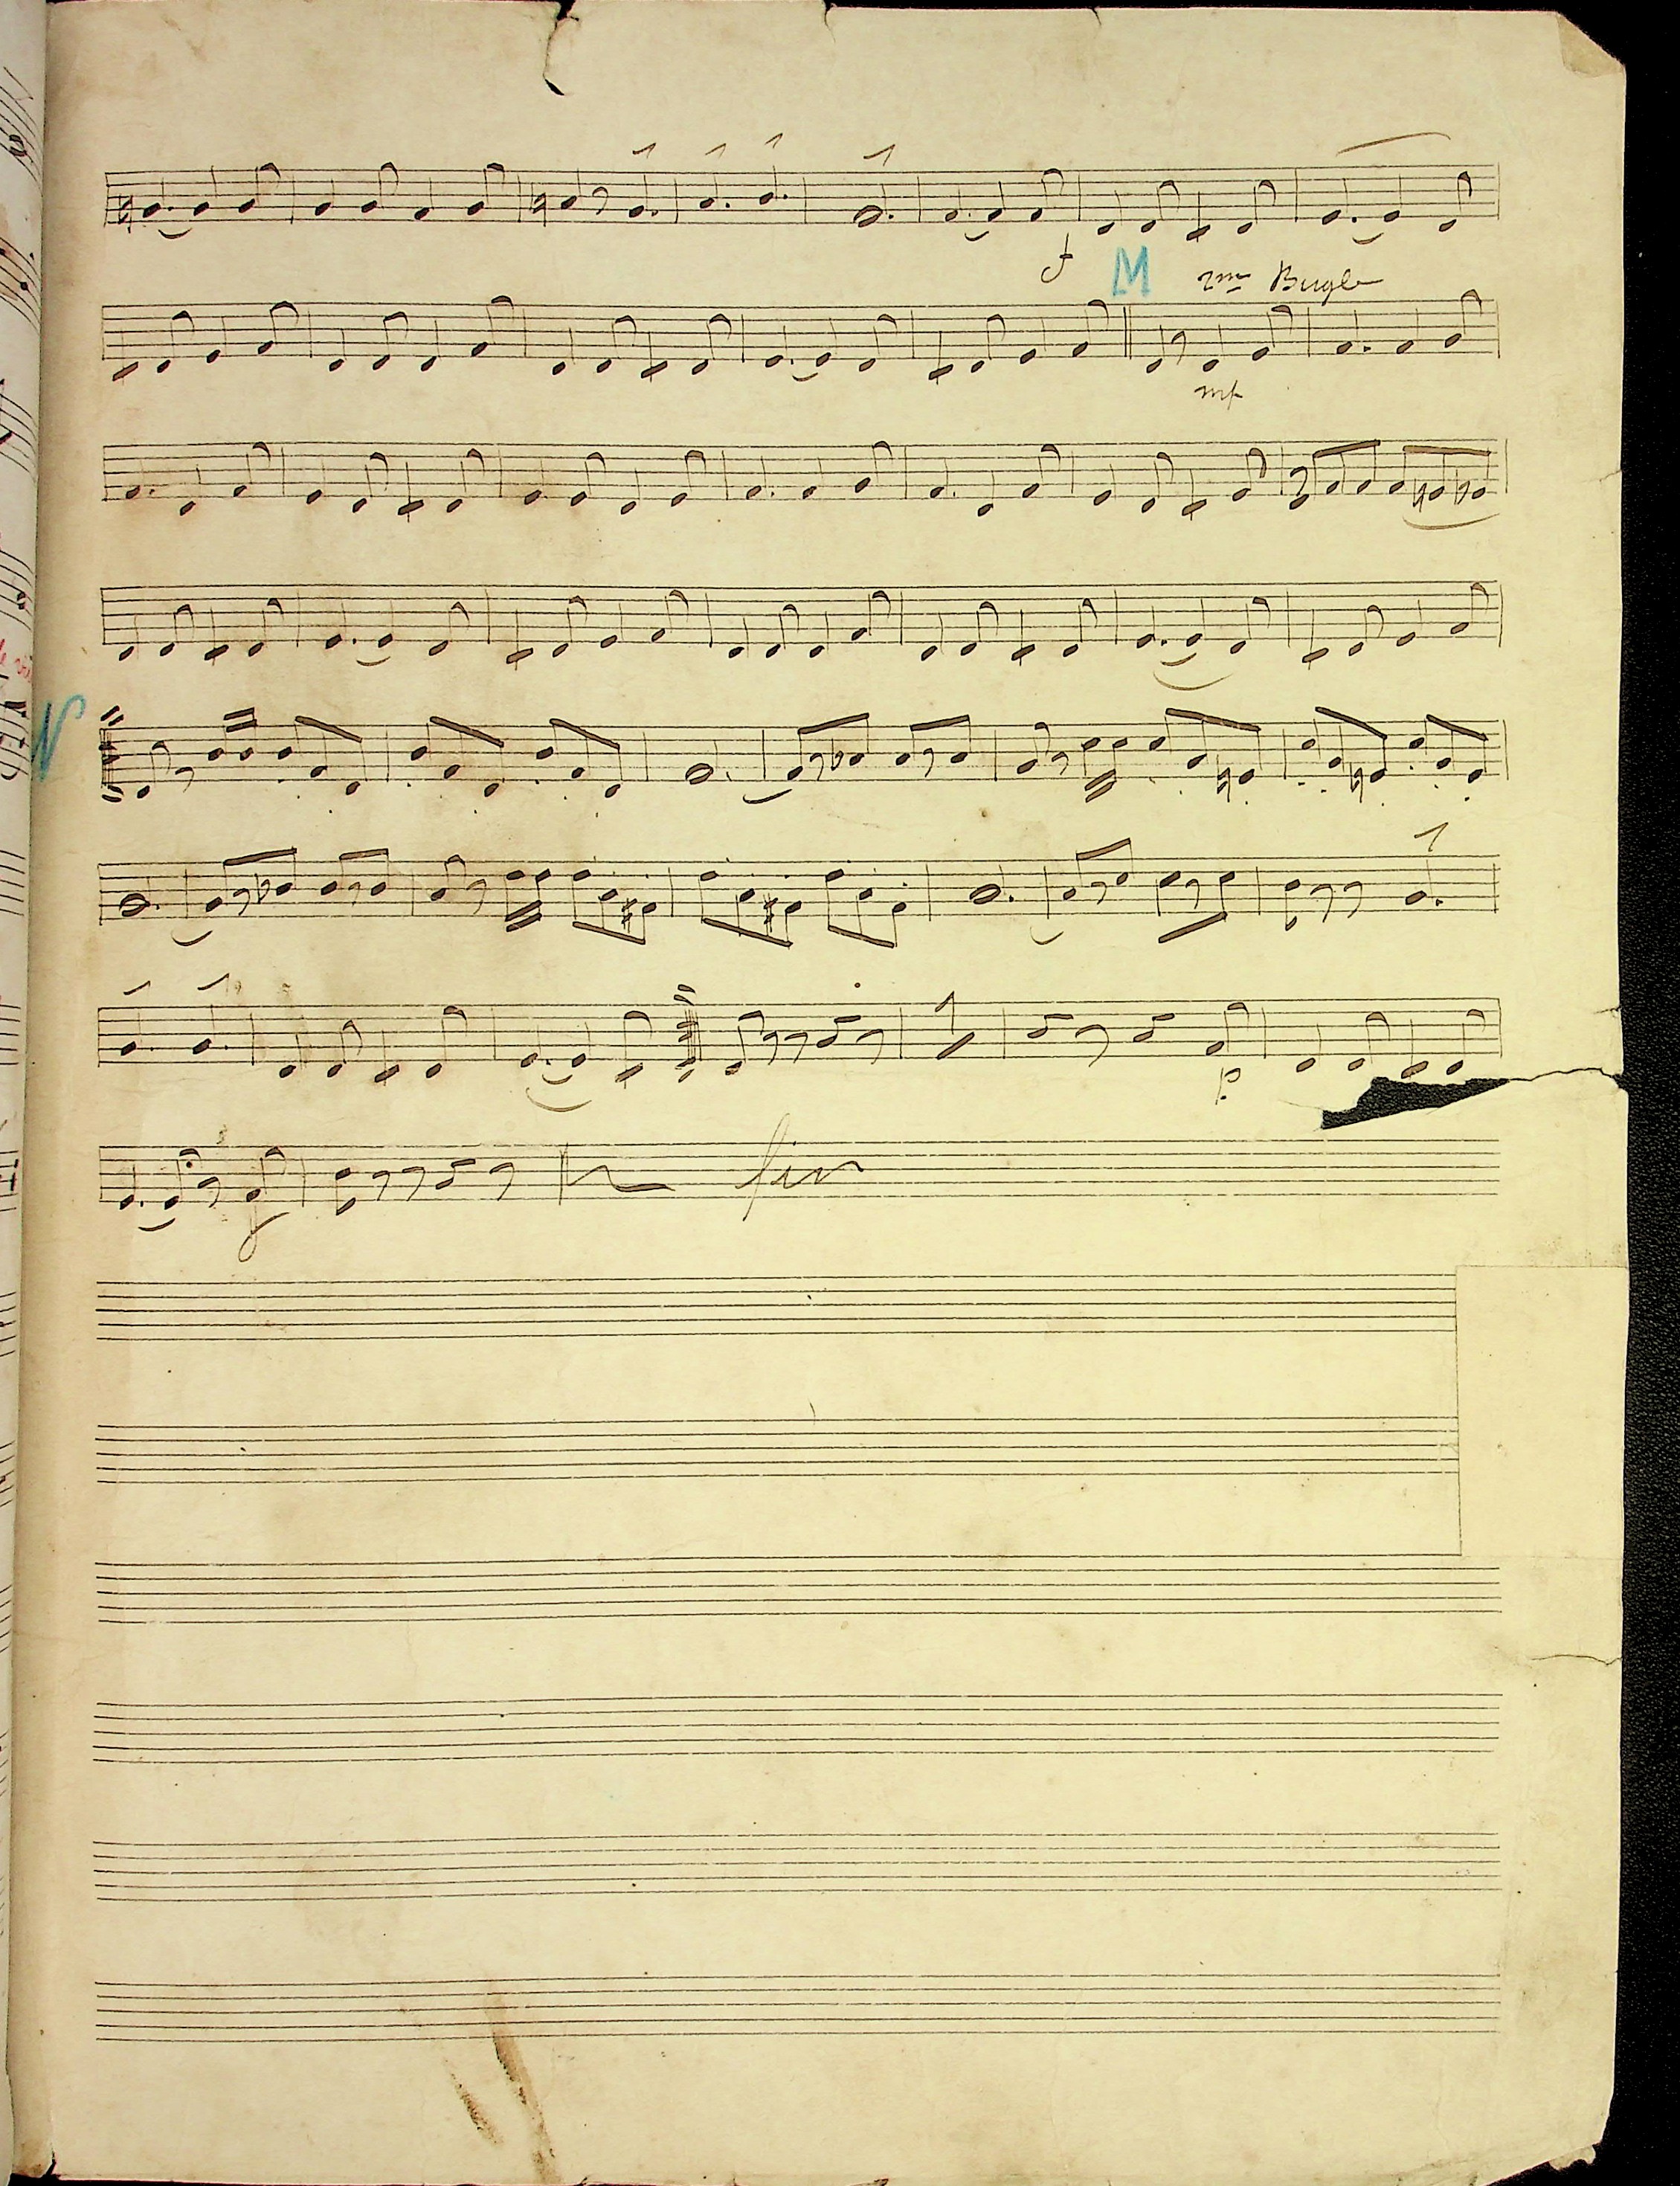 f M 2me Bugle
mf
N
p
f
fin